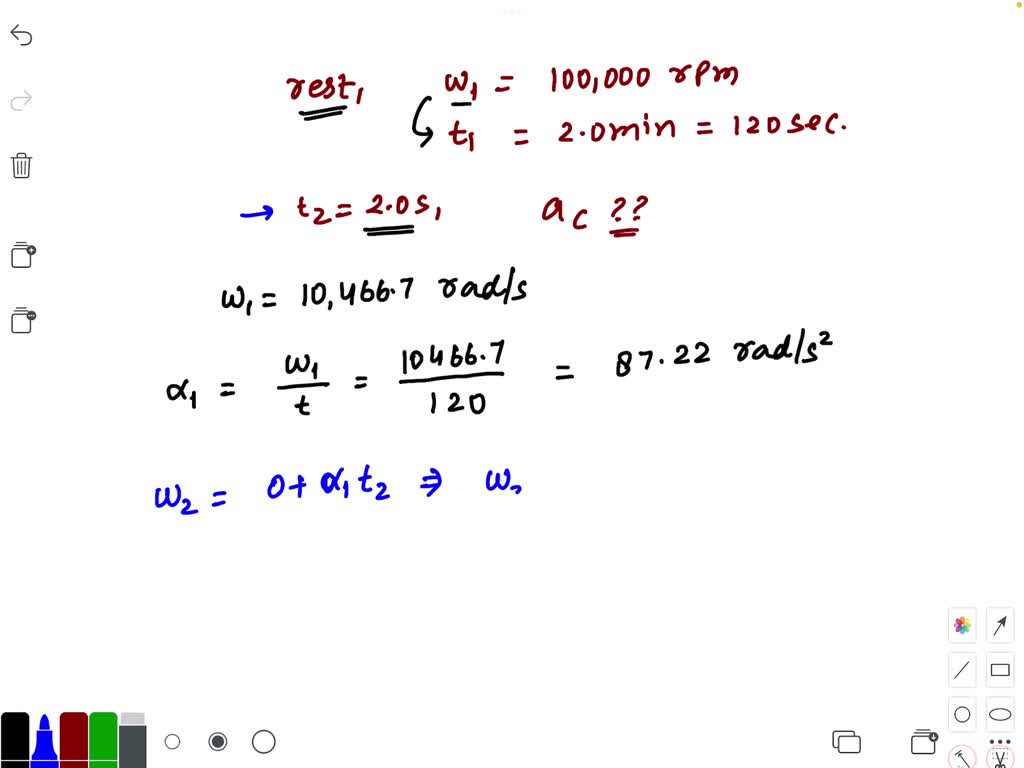 rest, ω₁ = 100,000 rpm
t₁ = 2.0min = 120sec.
→ t₂ = 2.0s, a꜀ ??
ω₁ = 10,466.7 rad/s
α₁ = ω₁/t = 10466.7/120 = 87.22 rad/s²
ω₂ = 0+ α₁t₂ ⇒ ω